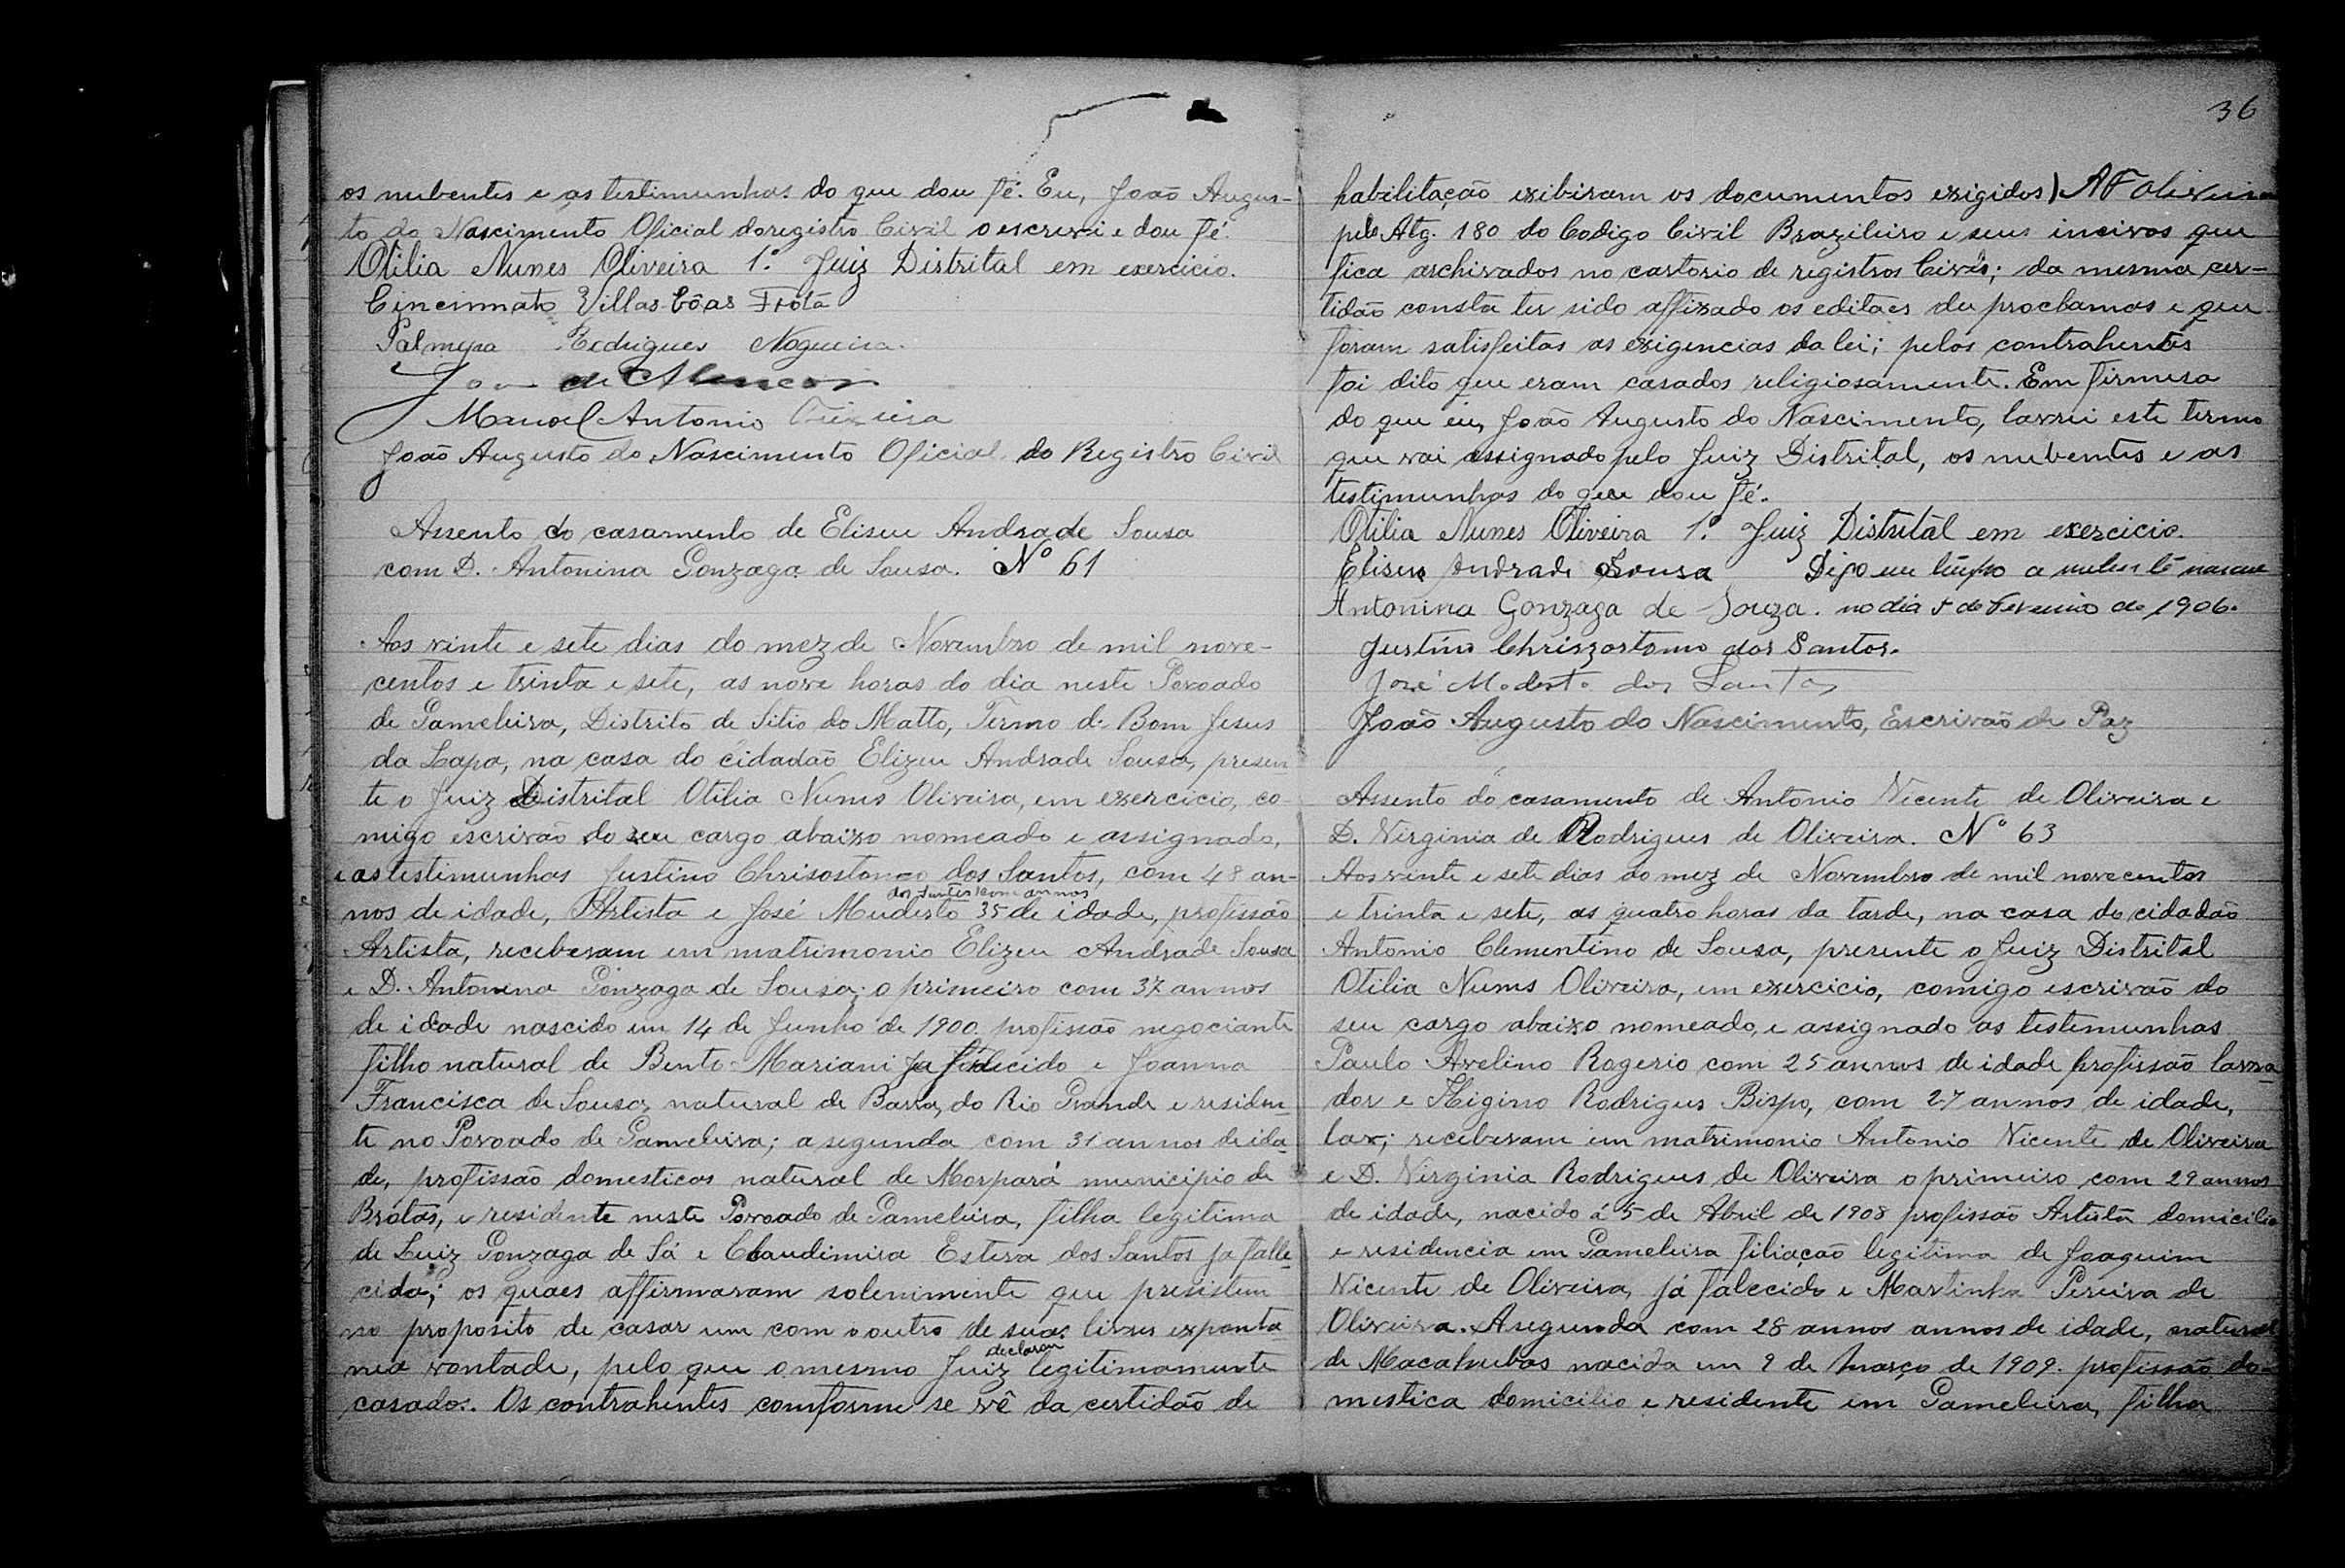 os nubentes e as testimunhas do que dou fé. Eu, João Augus-
to do Nascimento Oficial doregistro Civil o escrevi e dou fé.
Otilia Nunes Oliveira 1.º Juiz Distrital em exercicio.
Cincinnato Villas-bôas Frota
Palmyra Rodrigues Nogueira.
de
Manoel Antonio
João Augusto do Nascimento Oficial do Registro Civil
Assento do casamento de Eliseu Andrade Sousa
com D. Antonina Gonzaga de Sousa. Nº 61
Aos vinte e sete dias do mez de Novembro de mil nove-
centos e trinta e sete, as nove horas do dia neste Povoado
de Gameleira, Distrito de Sitio do Matto, Termo de Bom Jesus
da Lapa, na casa do cidadão Elizeu Andrade Sousa, presen-
te o Juiz Distrital Otilia Nunes Oliveira, em exercicio, co-
migo escrivão do seu cargo abaixo nomeado e assignado,
e as testimunhas Justino Chrisostomo dos Santos, com 48 an-
dos Santos com annos
nos de idade, Artista e José Mudesto 35 de idade, profissão
Artista, receberam em matrimonio Elizeu Andrade Sousa
e D. Antonina Gonzaga de Sousa; o primeiro com 37 annos
de idade nascido em 14 de Junho de 1900. profissão negociante
filho natural de Bento Mariani ja falecido e Joanna
Francisca de Sousa, natural de Barra, do Rio Grande e residen-
te no Povoado de Gameleira; a segunda com 31 annos de ida-
de, profissão domesticas natural de Morpará municipio de
Brotas, e residente neste Povoado de Gameleira, filha legitima
de Luiz Gonzaga de Sá e Claudimira Esteva dos Santos ja falle-
cida; os quaes affirmaram solenimente que presistem
no proposito de casar um com o outro de suas livres exponta-
declarou
nea vontade, pelo que o mesmo Juiz legitimamente
casados. Os contrahentes comforme se vê da certidão de
36
habilitação exibiram os documentos exigidos) A F Oliveira
pelo Atg. 180 do Codigo Civil Brazileiro e seus incivos que
fica archivados no cartorio de registros Civis; da mesma cer-
tidão consta ter sido affixado os editaes de prochamas e que
foram satisfeitas as exigencias da lei; pelos contrahentes
foi dito que eram casados religiosamente. Em firmesa
do que eu, João Augusto do Nascimento, lavrei este termo
que vai assignado pelo Juiz Distrital, os nubentes e as
testimunhas do que dou fé.
Otilia Nunes Oliveira 1.º Juiz Distrital em exercicio.
Eliseu Andrade Sousa Digo em tempo a nubente nasceu
Antonina Gonzaga de Souza. no dia de Fevereiro de 1906.
Justino Chrizzostomo dos Santos.
José Modesto dos Santos
João Augusto do Nascimento, Escrivão de Paz
Assento do casamento de Antonio Vicente de Oliveira e
D. Virginia de Rodrigues de Oliveira. Nº 63
Aos vinte e sete dias do mez de Novembro de mil novecentos
e trinta e sete, as quatro horas da tarde, na casa do cidadão
Antonio Clementino de Sousa, presente o Juiz Distrital
Otilia Nunes Oliveira, em exercicio, comigo escrivão do
seu cargo abaixo nomeado, e assignado as testemunhas
Paulo Avelino Rogerio com 25 annos de idade profissão lavra-
dor e Higino Rodrigues Bispo, com 27 annos de idade,
lav; receberam em matrimonio Antonio Vicente de Oliveira
e D. Virginia Rodrigues de Oliveira o primeiro com 29 annos
de idade, nacido á 5 de Abril de 1908 profissão Artista domicilio
e residencia em Gameleira filiação legitima de Joaquim
Vicente de Oliveira, já falecido e Martinha Pereira de
Oliveira. A segunda com 28 annos annos de idade, natural
de Macahubas nacida em 9 de Março de 1909. profissão do-
mestica domicilio e residente em Gameleira, filha